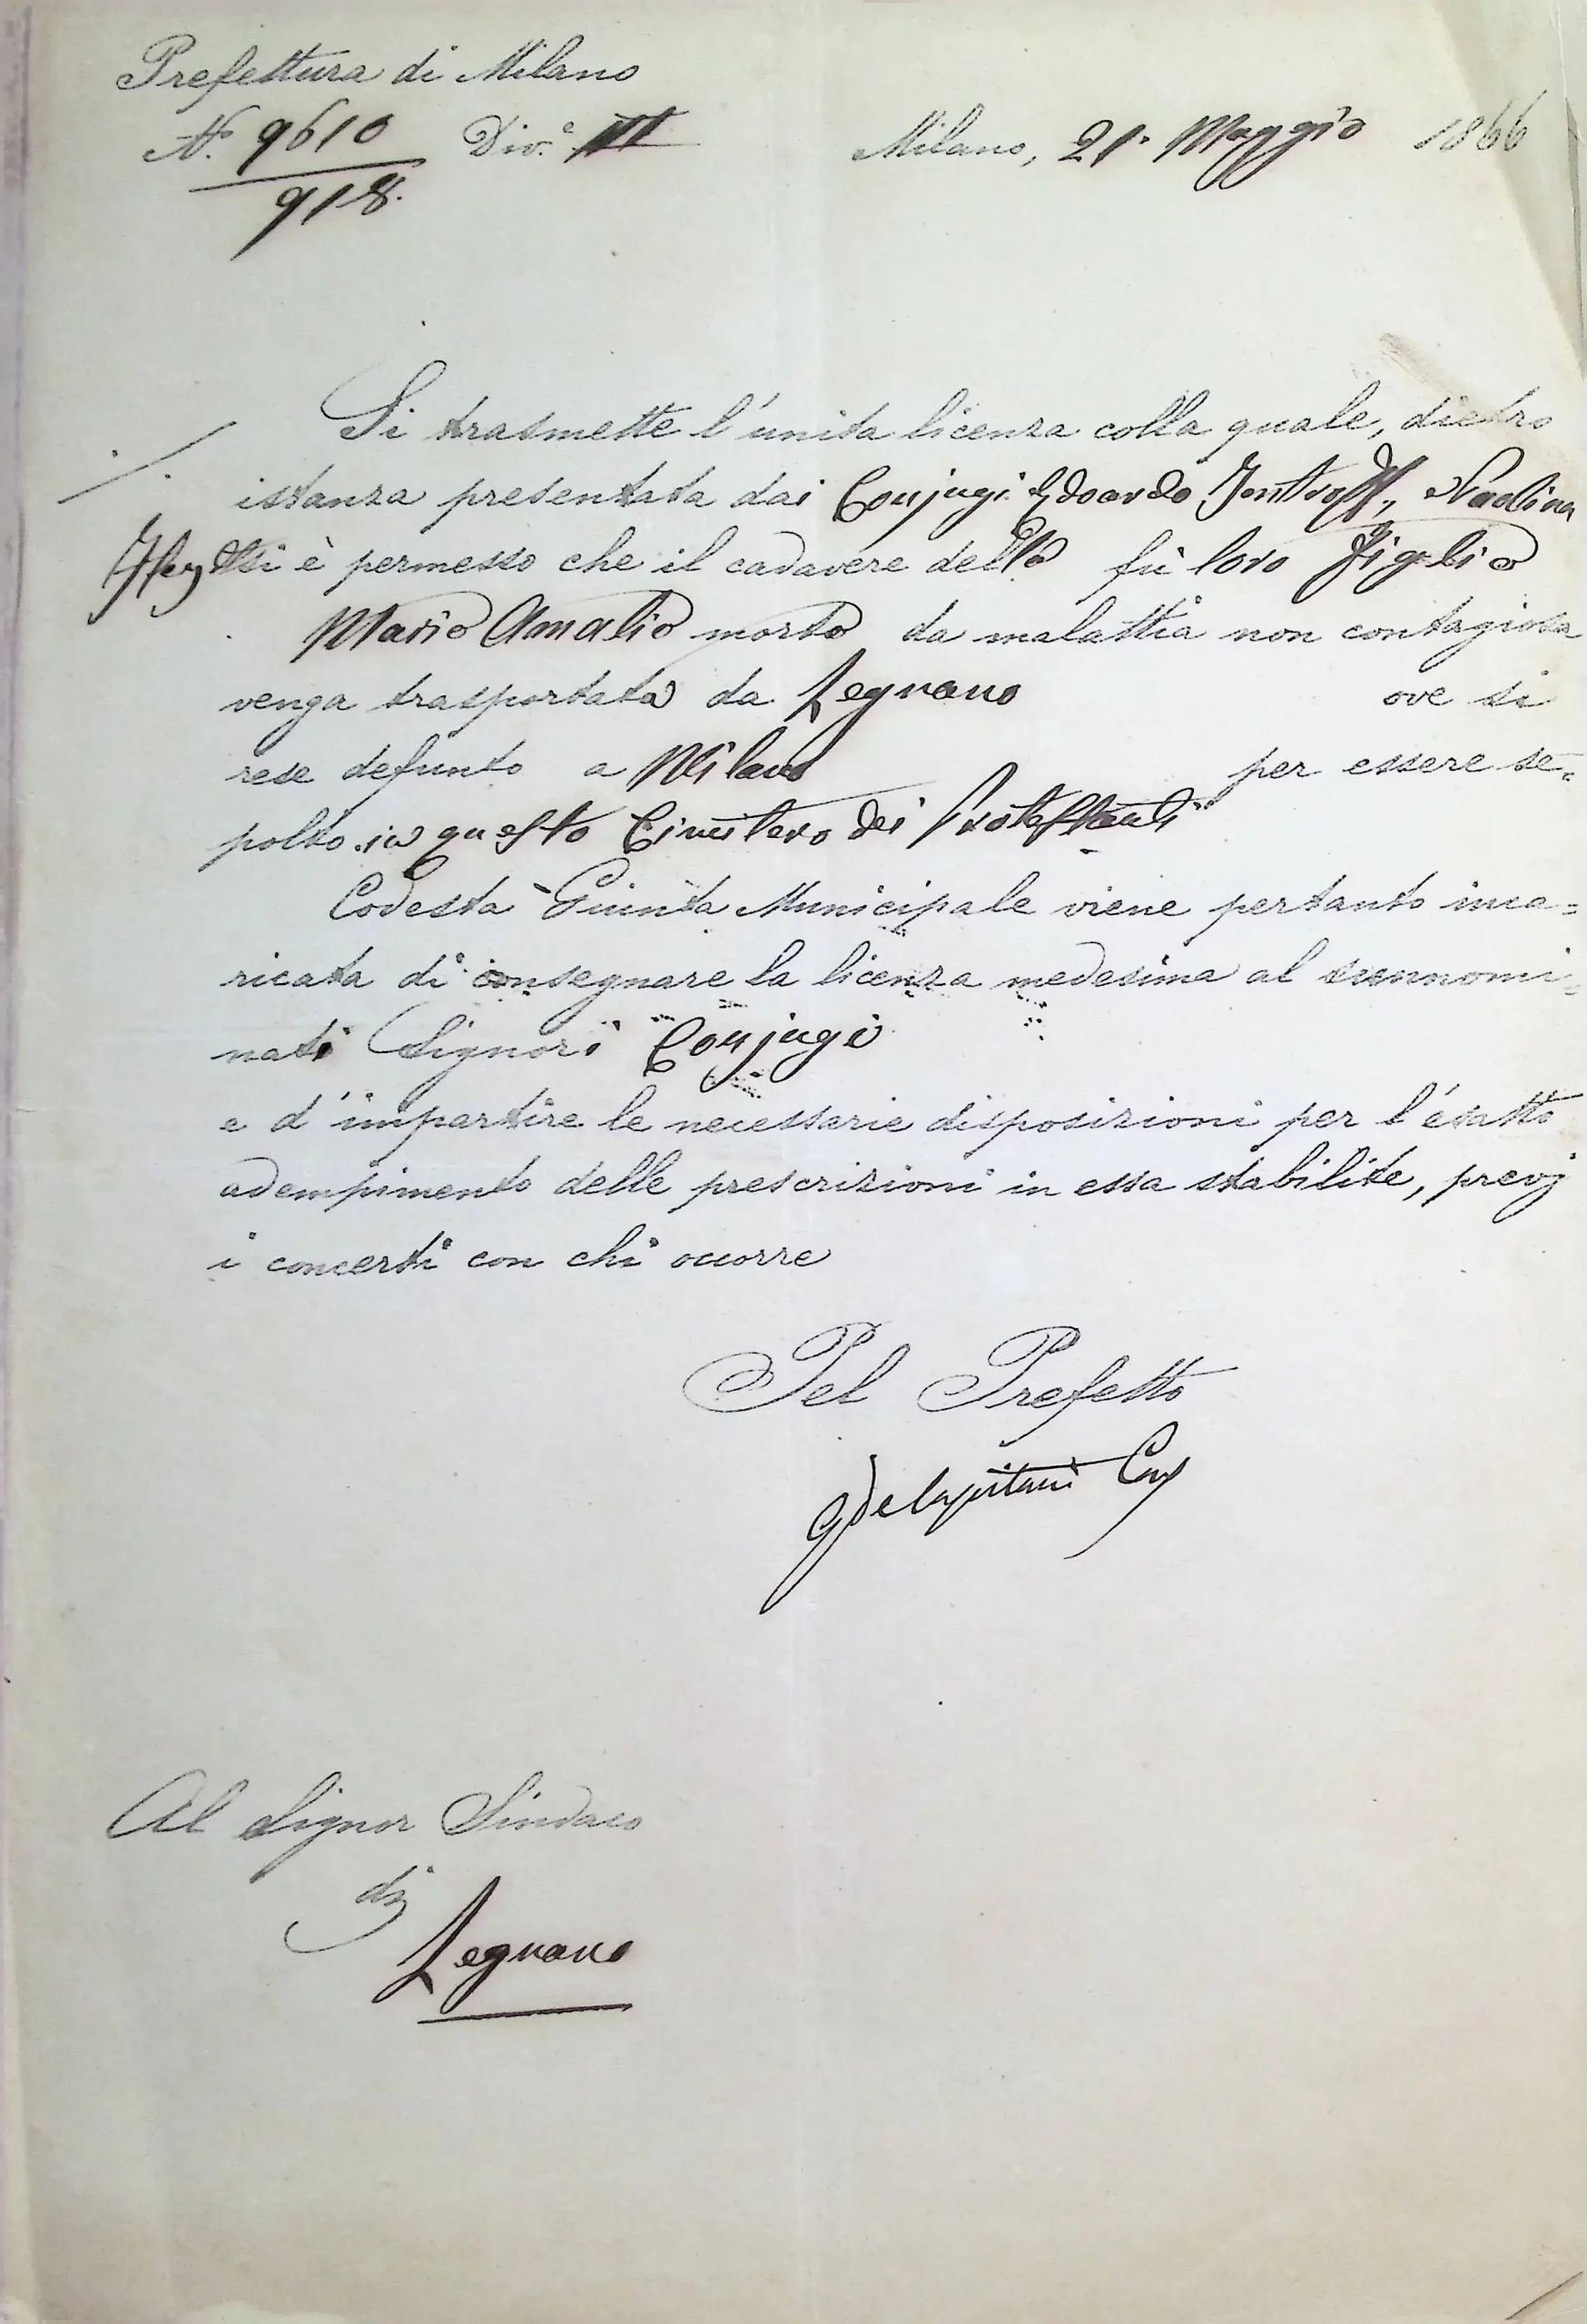 Prefettura di Milano
N. 9610 Div.e III
918.
Milano, 21. Maggio 1866
Si trasmette l'unita licenza colla quale, dietro
istanza presentata dai Conjugi Edoardo Paolina
si è permesso che il cadavere dello fù loro Figlio
Mario Amalio morto da malattia non contagiosa
venga trasportata da Legnano ove si
rese defunto a Milano per essere se=
polto in questo Cimitero dei Protestanti
Codesta Giunta Municipale viene pertanto inca=
ricata di consegnare la licenza medesima al sunnomi=
nati Signori Conjugi
e d'impartire le necessarie disposizioni per l'esatto
adempimento delle prescrizioni in essa stabilite, previj
i concerti con chi occorre
Pel Prefetto
Al Signor Sindaco
di
Legnano